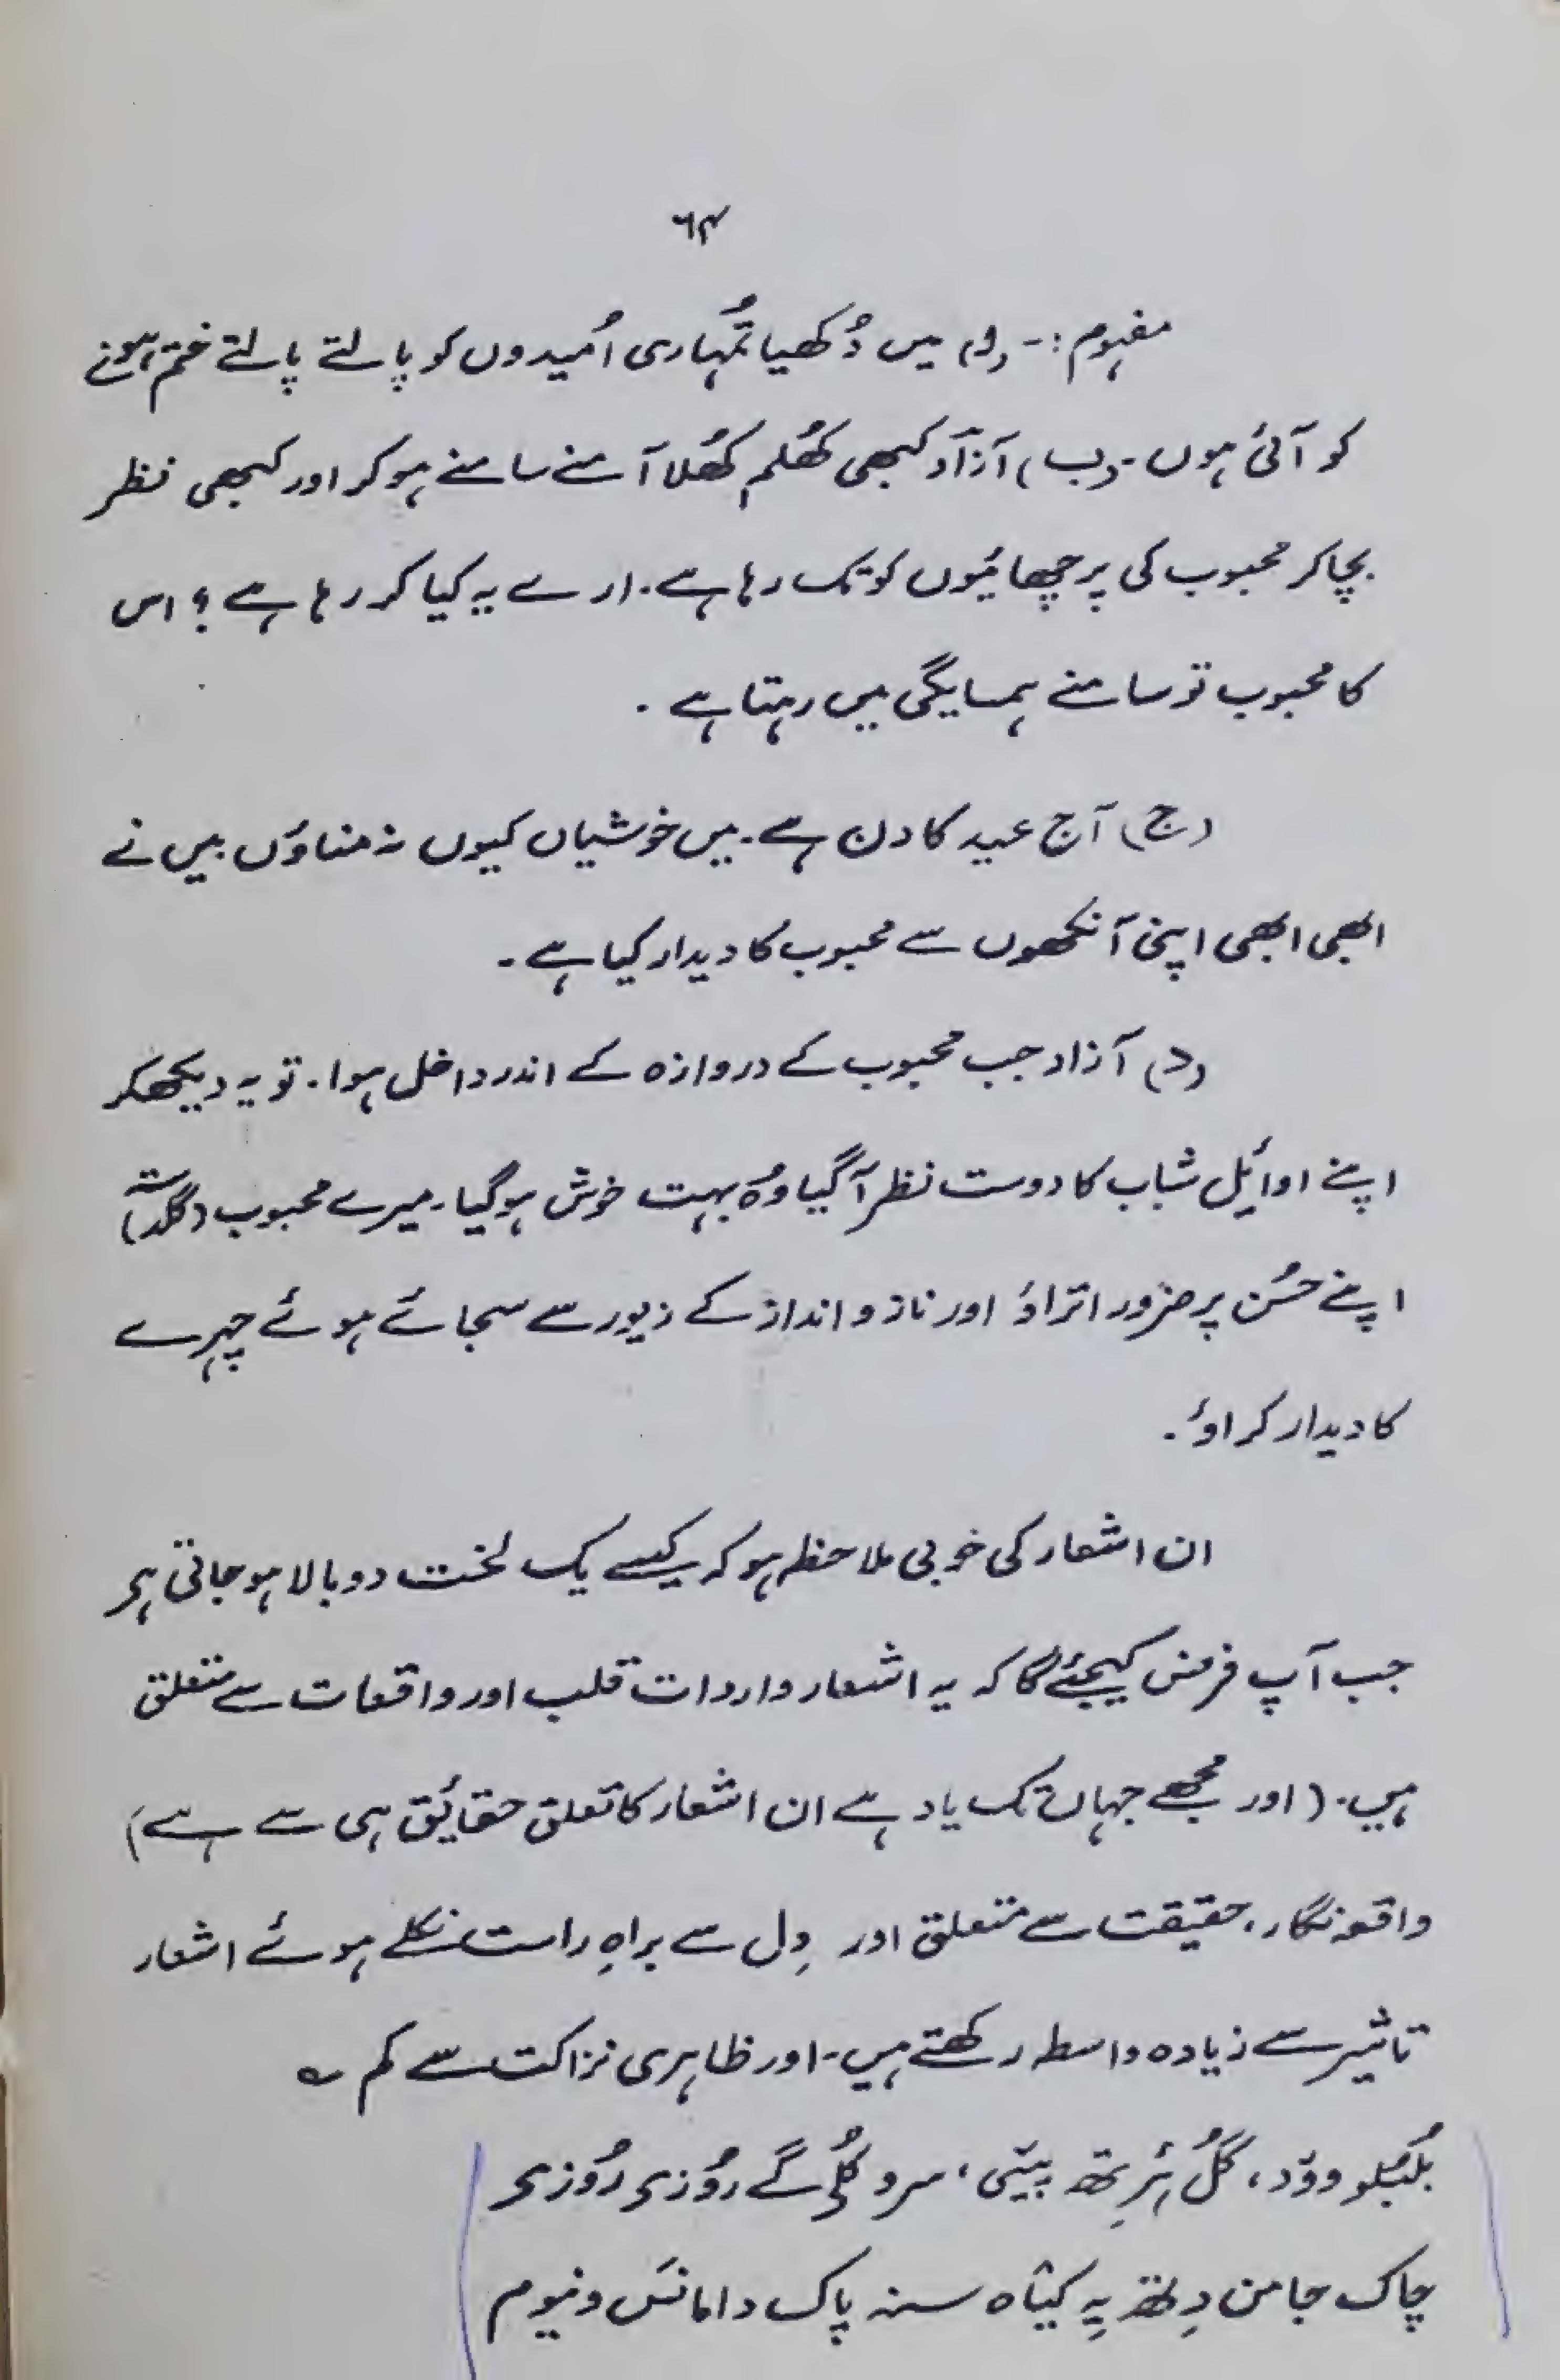 ۶۴
مفہوم :- (ا) میں دُکھیا تمُہاری اُمیدوں کو پالتے پالتے ختم ہونے
کو آئی ہوں ۔ (ب) آزاد کبھی کھُلم کھُلا آمنے سامنے ہو کر اور کبھی نظر
بچا کر محبوب کی پرچھائیوں کو تک رہا ہے ۔ ارے یہ کیا کر رہا ہے ؟ اس
کا محبوب تو سامنے ہمسایگی میں رہتا ہے ۔
(ج) آج عید کا دن ہے ۔ میں خوشیاں کیوں نہ مناوٗں میں نے
ابھی ابھی اپنی آنکھوں سے محبوب کا دیدار کیا ہے ۔
(د) آزاد جب محبوب کے دروازہ کے اندر داخل ہوا ۔ تو یہ دیکھکر
اپنے اوائِل شباب کا دوست نظر آگیا وہُ بہت خوش ہوگیا ۔ میرے محبوب
اپنے حسُن پر ضرور اتراؤ اور ناز و انداز کے زیور سے سجائے ہوئے چہرے
کا دیدار کراؤ ۔
ان اشعار کی خوبی ملاحظہ ہو کہ کیسے یک لخت دوبالا ہو جاتی ہی
جب آپ فرض کیجئے گا کہ یہ اشعار واردات قلب اور واقعات سے متعلق
ہیں ۔ ( اور مجھے جہاں تک یاد ہے ان اشعار کا تعلق حقائق ہی سے ہے )
واقعہ نگار ، حقیقت سے متعلق اور دِل سے براہِ راست نکلے ہوئے اشعار
تاثیر سے زیادہ واسطہ رکھتے ہیں ۔ اور ظاہری نزاکت سے کم ؎
بُلبُلو وودُ ، گُل ہَرِتھ پیٚی ، سرو کُلی گے روُزی روُزی
چاک جامن دِتھ یِہ کیٛاہ سنہ پاک دامانَس ونیوم